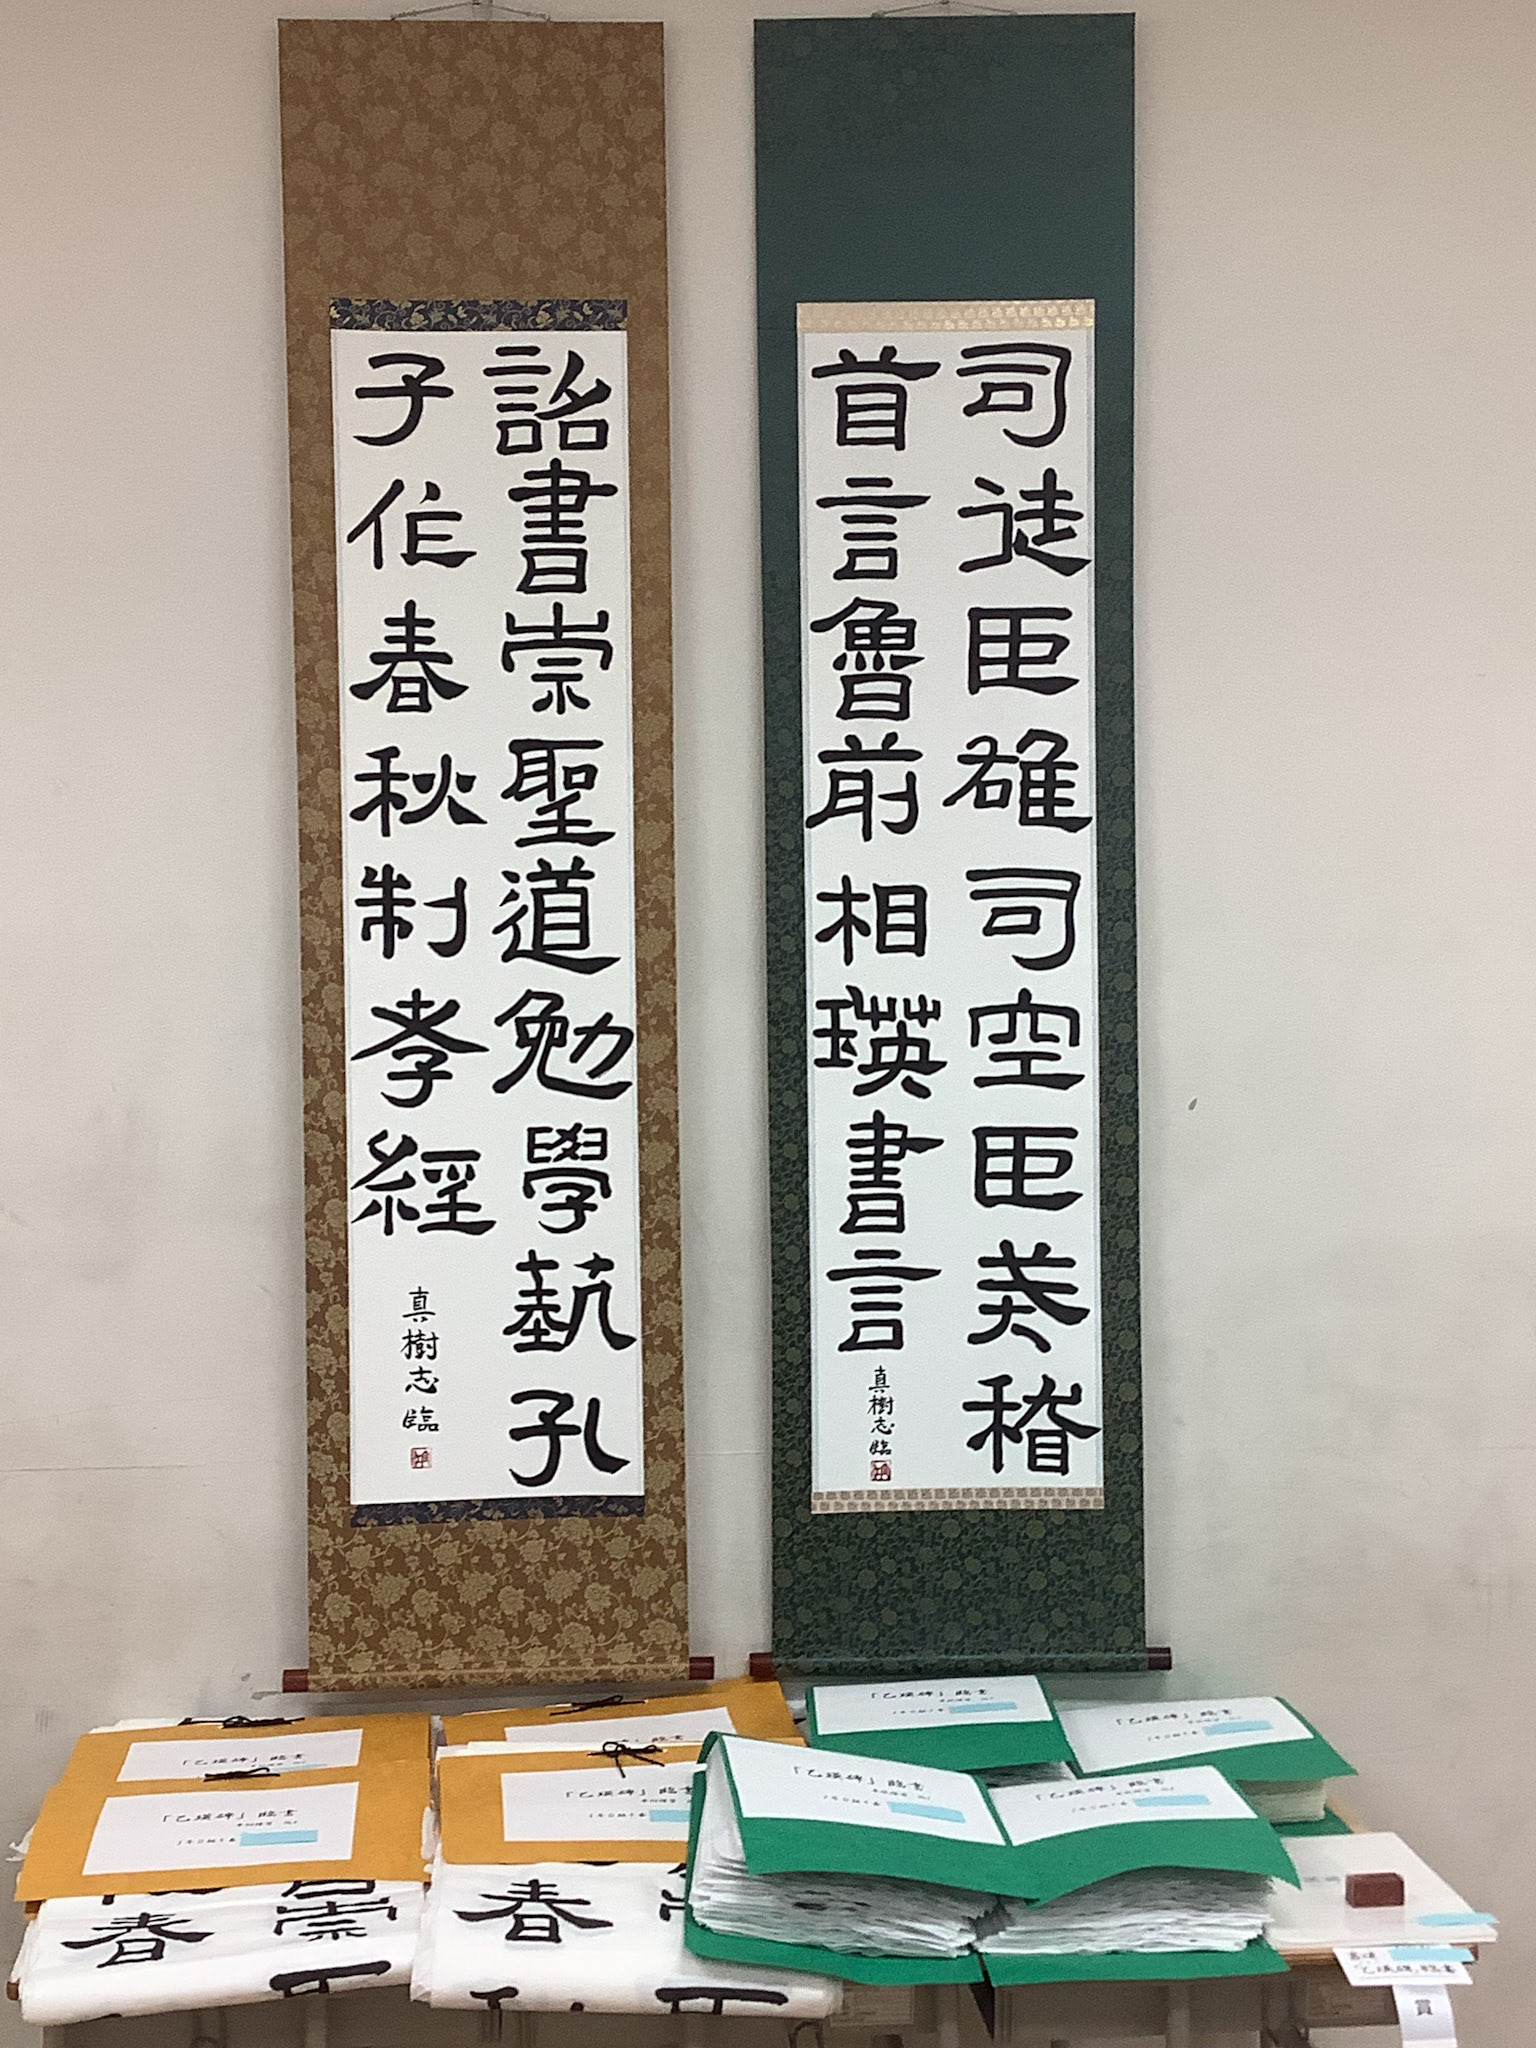 司徒臣雄司空臣戒稽
首言魯前相瑛書言
真樹志臨
詔書崇聖道勉學藝孔
子作春秋制孝經
真樹志臨
「乙瑛碑」臨書
「乙瑛碑」臨書
「乙瑛碑」臨書
「乙瑛碑」臨書
「乙瑛碑」臨書
「乙瑛碑」臨書
「乙瑛碑」臨書
春
崇
春
「乙瑛碑」臨書
賞